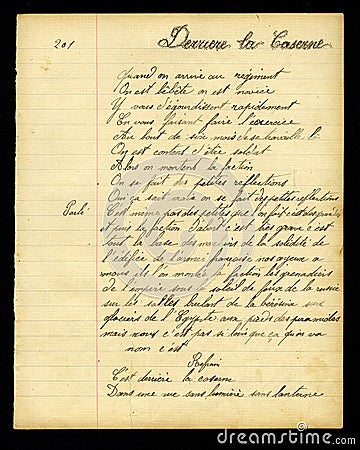 201 Derriere la Caserne
Quand on arrive au regiment
On est bébête on est novice
Y vous dégourdissent rapidement
En vous faisant faire l'exercice
Au bout de six mois
On est content d'être soldat
Alors on montent la faction
On se fait des petites reflections
Parlé Oui ça sait vrais on se fait des petites reflections
C'est même pas des petites
et puis la faction c'est très grave c'est
tout la base des la solidité de
l'édifice de l'armée française nos ayeux a
nous ils l'on montée la faction les grenadiers
de l'empire sous le soleil de de la russie
sur les sables brulant de la bérésina aux
glaciers de l'Egypte aux pieds des piramides
mais nous c'est pas si loin que ça qu'on va
nom c'est
Refrain
C'est derrière la caserne
Dans une rue sans lumière sans lanterne
dreamstime.com